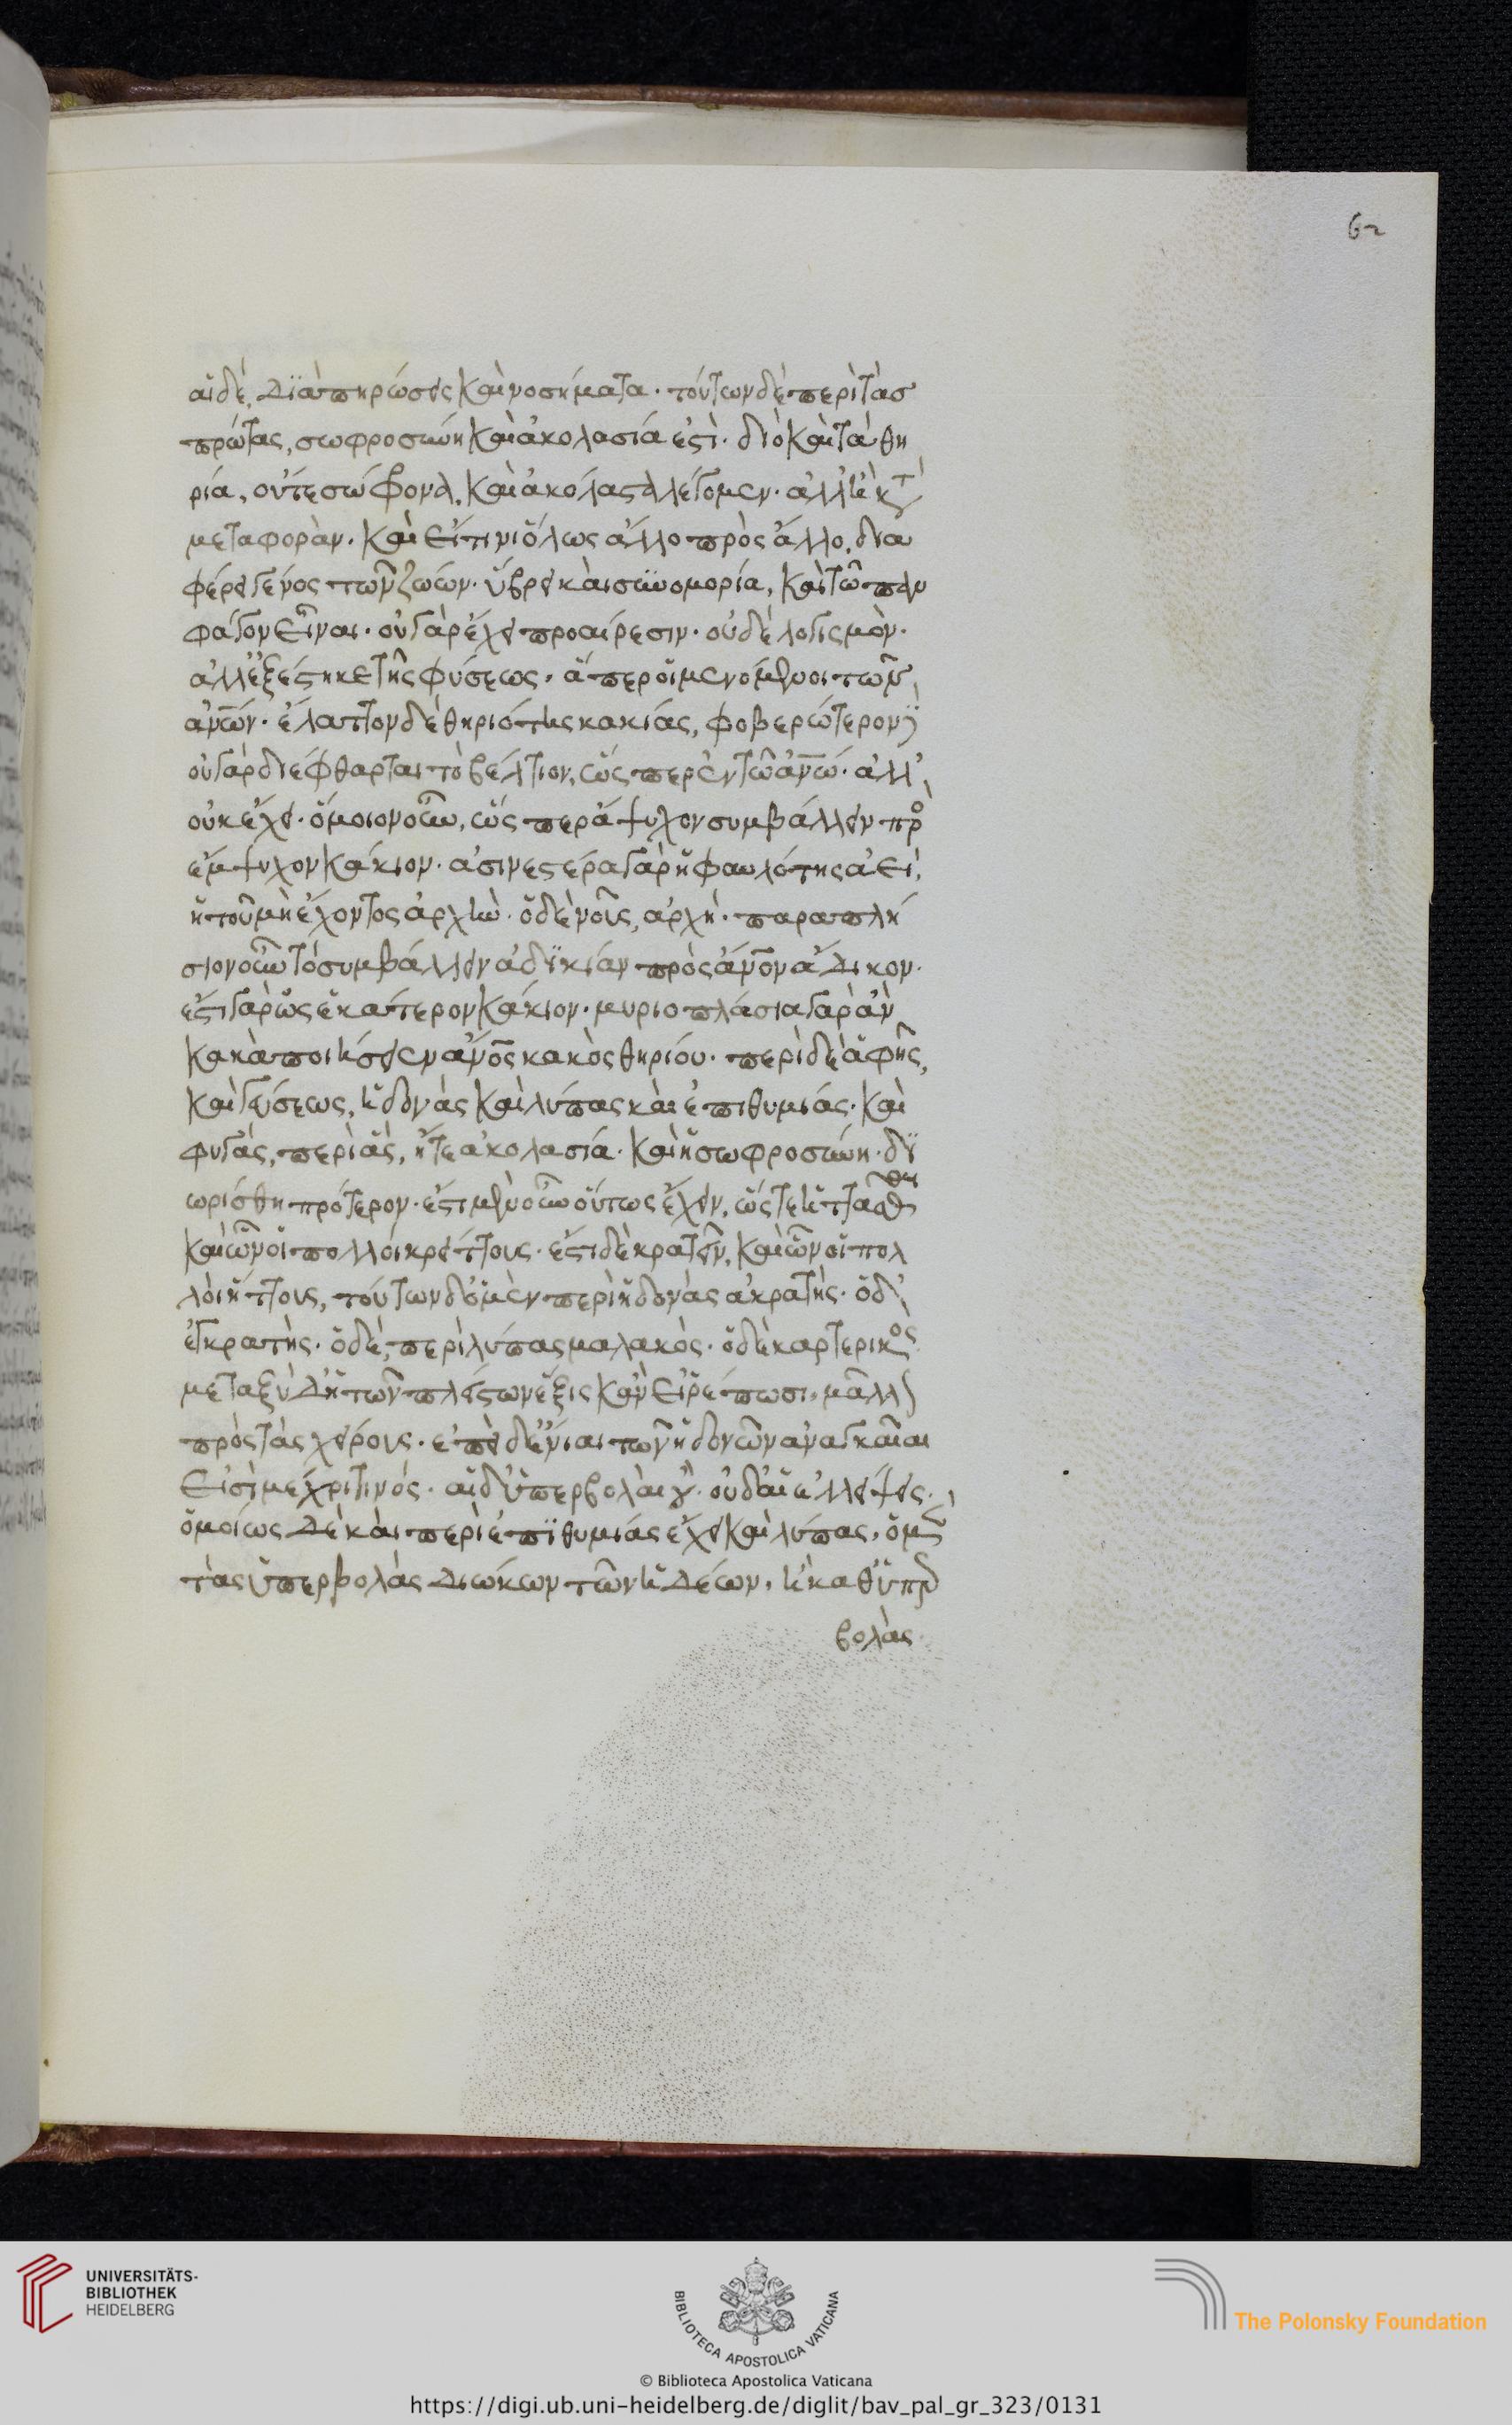 62
αἱ δὲ, διὰ πηρώσεις καὶ νοσήματα. τούτων δὲ περὶ τὰς
πρώτας, σωφροσύνη καὶ ἀκολασία ἐστὶ. διὸ καὶ τὰ θη
ρία, οὔτε σώφρονα, καὶ ἀκόλαστα λέγομεν. ἀλλ' ἢ κατὰ
μεταφορὰν. καὶ εἴ τινι ὅλως ἄλλο πρὸς ἄλλο, δια
φέρει γένος τῶν ζώων. ὕβρει καὶ συνομορία, καὶ τῶ παν
φάγον εἶναι. οὐ γὰρ ἔχει προαίρεσιν. οὐδὲ λογισμὸν.
ἀλλ' ἐξέστηκε τῆς φύσεως. ἅπερ οἱ μαινόμενοι τῶν
ἀνῶν. ἔλαττον δὲ θηριότης κακίας, φοβερώτερον δὲ
οὐ γὰρ διέφθαρται τὸ βέλτιον, ὥσπερ ἐν τῶ ἀνῶ. ἀλλ'
οὐκ ἔχει. ὅμοιον οὖν, ὥσπερ ἄψυχον συμβάλλειν πρὸς
ἔμψυχον κάκιον. ἀσινεστέρα γὰρ ἡ φαυλότης ἀεὶ,
ἡ τοῦ μὴ ἔχοντος ἀρχὴν. ὁ δὲ νοῦς, ἀρχή. παραπλή
σιον οὖν τὸ συμβάλλειν ἀδικίαν πρὸς ἄνον ἄδικον.
ἔστι γὰρ ὡς ἑκάτερον κάκιον. μυριοπλάσια γὰρ ἂν
κακὰ ποιήσειεν ἄνος κακὸς θηρίου. περὶ δὲ ἁφῆς,
καὶ γεύσεως, ἡδονάς καὶ λύπας καὶ ἐπιθυμιάς. καὶ
φυγάς, περὶ ἃς, ἥ τε ἀκολασία. καὶ ἡ σωφροσύνη. δι
ωρίσθη πρότερον. ἔστι μὲν οὖν οὕτως ἔχειν, ὥστε ἡττᾶσθαι
καὶ ὧν οἱ πολλοὶ κρείττους. ἔστι δὲ κρατεῖν, καὶ ὧν οἱ πολ
λοὶ ἥττους, τούτων δ' ὁ μὲν περὶ ἡδονάς ἀκρατής. ὁ δ'
ἐγκρατής. ὁ δὲ, περὶ λύπας μαλακὸς. ὁ δὲ καρτερικός.
μεταξὺ δ' ἡ τῶν πλείστων ἕξις κἂν εἰ ῥέπωσι, μᾶλλον
πρὸς τὰς χείρους. ἐπεὶ δ' ἔνιαι τῶν ἡδονῶν ἀναγκαῖαι
εἰσὶ μέχρι τινός. αἱ δ' ὑπερβολαὶ οὔ. οὐδ' αἱ ἐλλείψεις.
ὁμοίως δὲ καὶ περὶ ἐπιθυμιάς ἔχει καὶ λύπας. ὁ μὲν
τὰς ὑπερβολὰς διώκων τῶν ἡδέων, ἢ καθ' ὑπερ
βολὰς
UNIVERSITÄTS-
BIBLIOTHEK
HEIDELBERG
BIBLIOTECA APOSTOLICA VATICANA
The Polonsky Foundation
© Biblioteca Apostolica Vaticana
https://digi.ub.uni-heidelberg.de/diglit/bav_pal_gr_323/0131